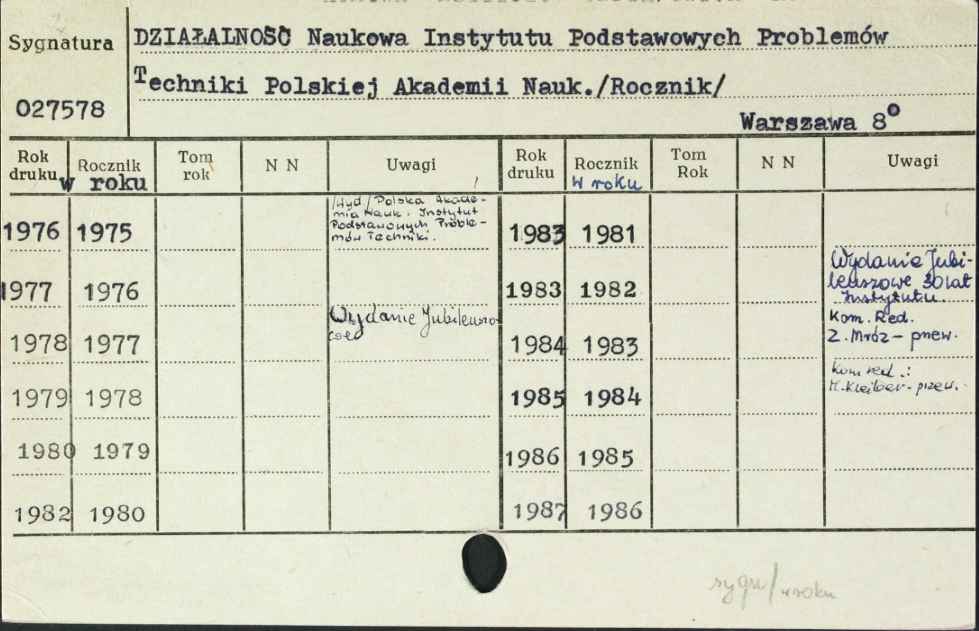 Sygnatura
027578
DZIAŁALNOŚĆ Naukowa Instytutu Podstawowych Problemów
Techniki Polskiej Akademii Nauk./Rocznik/
Warszawa 8°
Rok druku Rocznik w roku Tom rok N N Uwagi Rok druku Rocznik w roku Tom Rok N N Uwagi
1976 1975 /Wyd/ Polska Akade-
mia Nauk. Instytut
Podstawowych Proble-
mów Techniki.
1983 1981
1977 1976
1983 1982 Wydanie Jubi-
leuszowe 30 lat
Instytutu.
1978 1977 Wydanie Jubileuszo-
1984 1983 Kom. Red.
Z. Mróz - przew.
1979 1978
1985 1984 Kom red.:
M. Kleiber - przew.
1980 1979
1986 1985
1982 1980
1987 1986